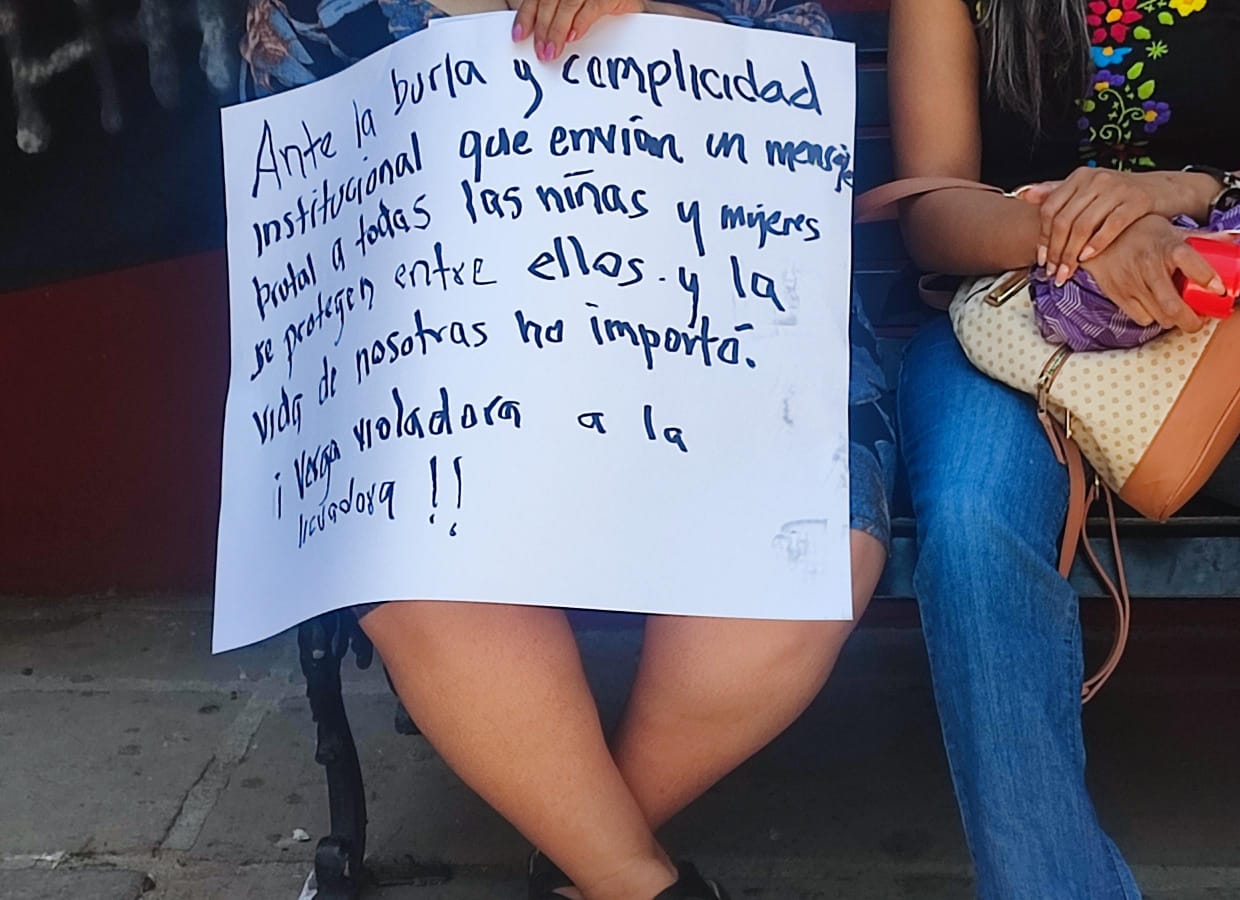 Ante la burla y complicidad
institucional que envían un mensaje
brutal a todas las niñas y mujeres
se protegen entre ellos. y la
vida de nosotras no importá.
¡ Verga violadora a la
licuadora !!